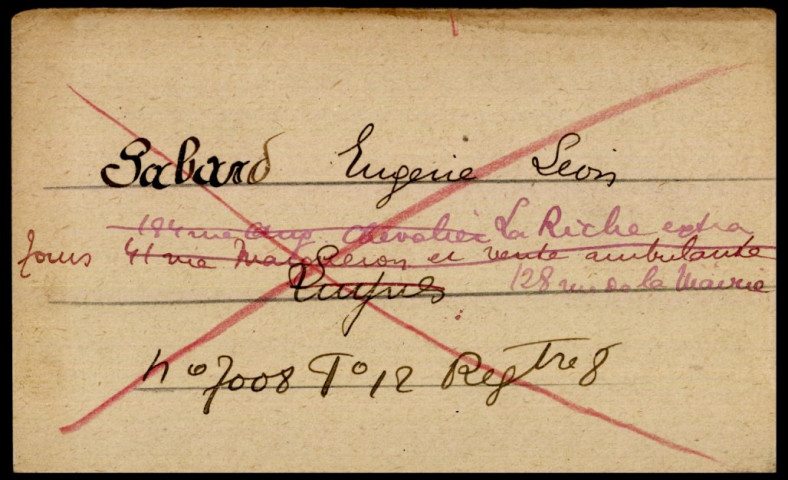 Sabard Eugène Léon
184 rue Aug Chevalier La Riche extra
Tours 41 rue Margueron et vente ambulante
Luynes 128 rue de la Mairie
No 7008 Fo 12 Regtre 8